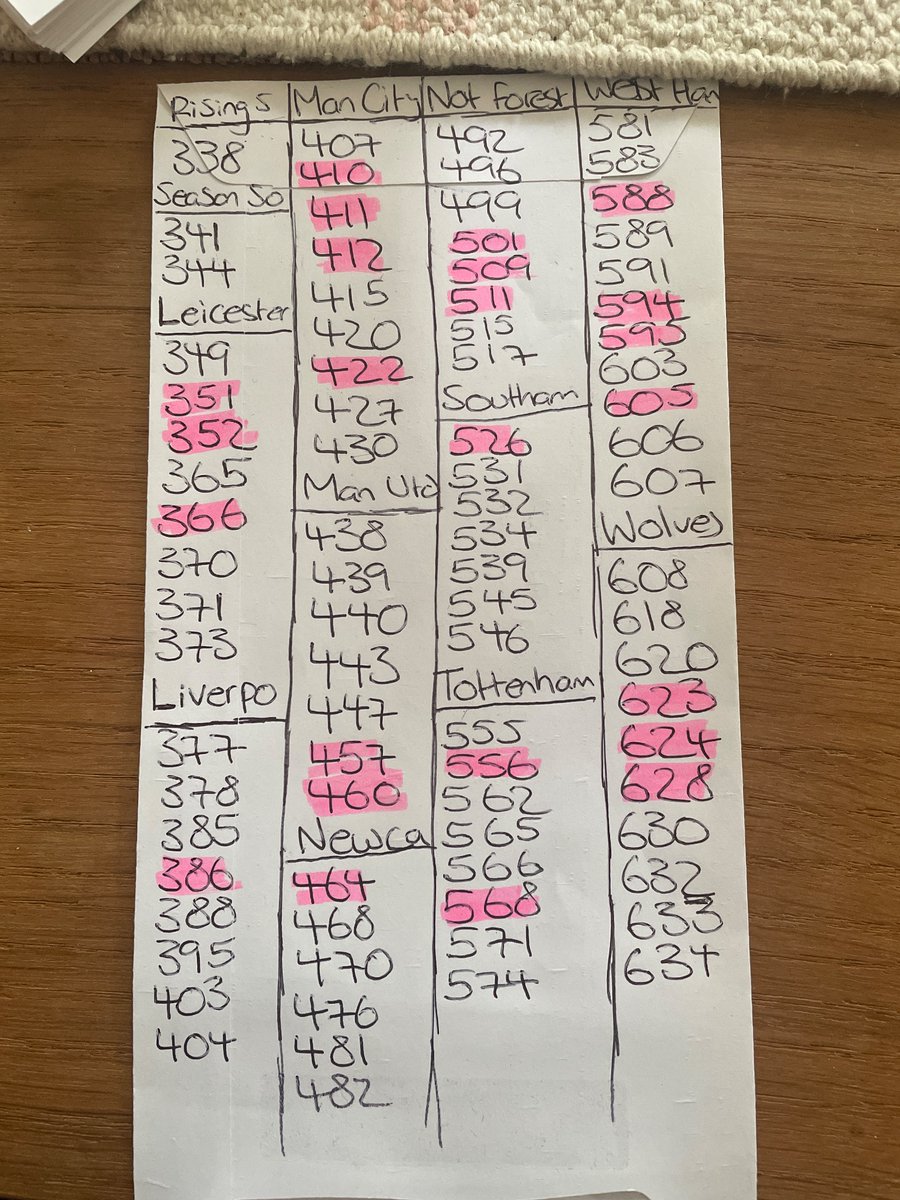 Rising S
338
Season So
341
344
Leicester
349
351
352
365
366
370
371
373
Liverpo
377
378
385
386
388
395
403
404
Man City
407
410
411
412
415
420
422
427
430
Man Utd
438
439
440
443
447
457
460
Newca
464
468
470
476
481
482
Not Forest
492
496
499
501
509
511
515
517
Southam
526
531
532
534
539
545
546
Tottenham
555
556
562
565
566
568
571
574
West Ham
581
583
588
589
591
594
595
603
605
606
607
Wolves
608
618
620
623
624
628
630
632
633
634